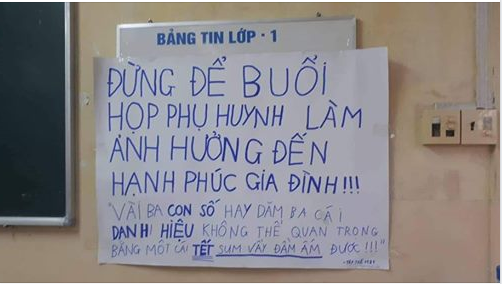 BẢNG TIN LỚP · 1
ĐỪNG ĐỂ BUỔI
HỌP PHỤ HUYNH LÀM
ẢNH HƯỞNG ĐẾN
HẠNH PHÚC GIA ĐÌNH!!!
"VÀI BA CON SỐ HAY DĂM BA CÁI
DANH HIỆU KHÔNG THỂ QUAN TRỌNG
BẰNG MỘT CÁI TẾT SUM VẦY ĐẦM ẤM ĐƯỢC!!!"